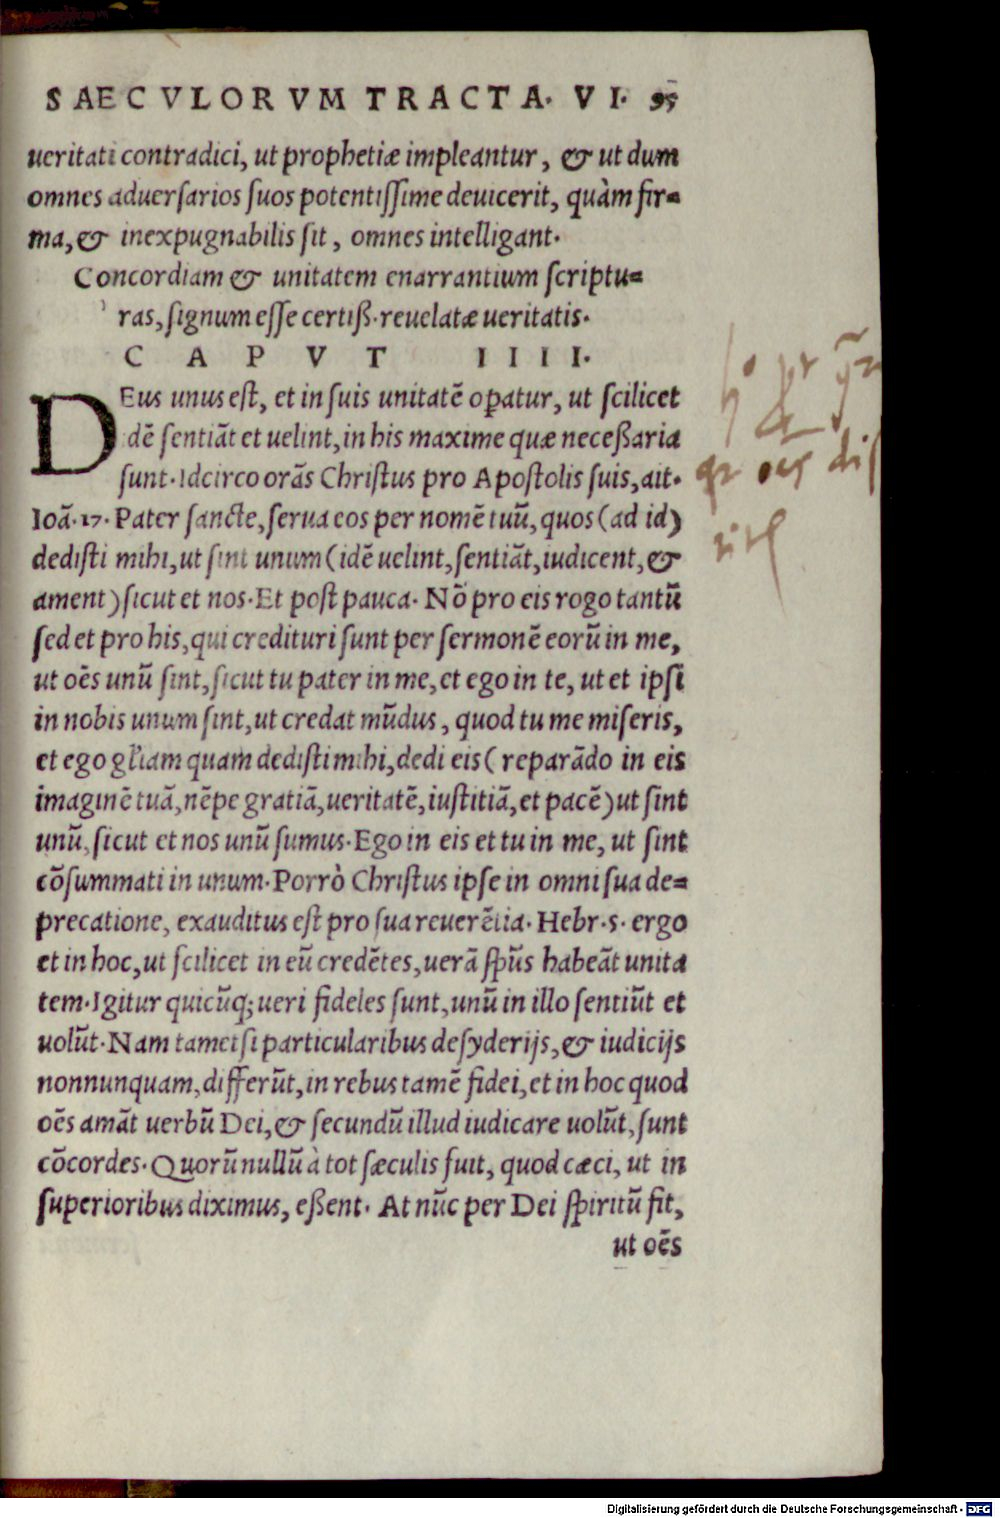 SAECVLORVM TRACTA. VI. 95
ueritati contradici, ut prophetiæ impleantur, & ut dum
omnes aduersarios suos potentissime deuicerit, quàm fir-
ma, & inexpugnabilis sit, omnes intelligant.
Concordiam & unitatem enarrantium scriptu-
ras, signum esse certiß. reuelatæ ueritatis.
CAPVT IIII.
DEus unus est, et in suis unitatē opatur, ut scilicet
idē sentiāt et uelint, in his maxime quæ neceßaria
sunt. Idcirco orās Christus pro Apostolis suis, ait.
Ioā. 17. Pater sancte, serua eos per nomē tuū, quos (ad id)
dedisti mihi, ut sint unum (idē uelint, sentiāt, iudicent, &
ament) sicut et nos. Et post pauca. Nō pro eis rogo tantū
sed et pro his, qui credituri sunt per sermonē eorū in me,
ut oēs unū sint, sicut tu pater in me, et ego in te, ut et ipsi
in nobis unum sint, ut credat mūdus, quod tu me miseris,
et ego gl̄iam quam dedisti mihi, dedi eis (reparādo in eis
imaginē tuā, nēpe gratiā, ueritatē, iustitiā, et pacē) ut sint
unū, sicut et nos unū sumus. Ego in eis et tu in me, ut sint
cōsummati in unum. Porrò Christus ipse in omni sua de-
precatione, exauditus est pro sua reuerētia. Hebr. 5. ergo
et in hoc, ut scilicet in eū credētes, uerā sp̄us habeāt unita
tem. Igitur quicūq; ueri fideles sunt, unū in illo sentiūt et
uolūt. Nam tametsi particularibus desyderijs, & iudicijs
nonnunquam, differūt, in rebus tamē fidei, et in hoc quod
oēs amāt uerbū Dei, & secundū illud iudicare uolūt, sunt
cōcordes. Quorū nullū à tot sæculis fuit, quod cæci, ut in
superioribus diximus, eßent. At nūc per Dei spiritū fit,
ut oēs
Digitalisierung gefördert durch die Deutsche Forschungsgemeinschaft - DFG